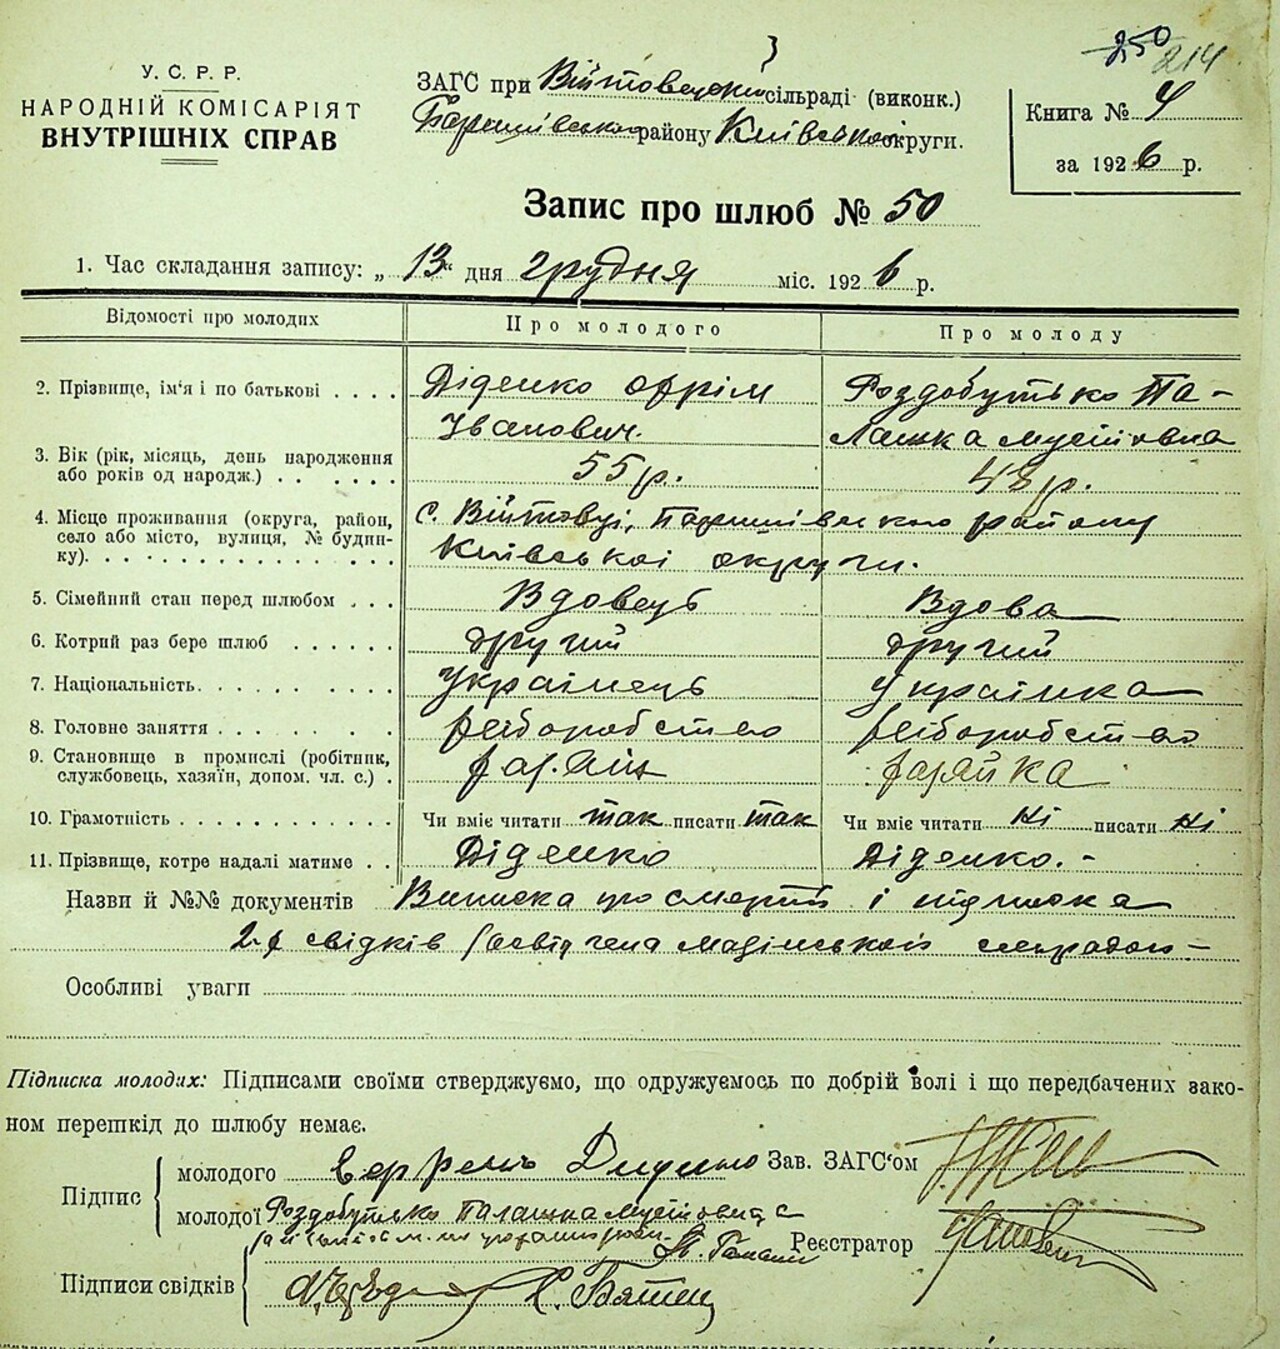 250 214
У. С. Р. Р.
НАРОДНІЙ КОМІСАРІЯТ
ВНУТРІШНІХ СПРАВ
ЗАГС при Війтовецькій сільраді (виконк.)
Баришівського району Київської округи.
Книга № 4
за 1926 р.
Запис про шлюб № 50
1. Час складання запису: „13“ дня грудня міс. 1926 р.
Відомості про молодих Про молодого Про молоду
2. Прізвище, ім‘я і по батькові . . . . Діденко Офрім Роздобутько Па-
Іванович. лашка Мусіівна
3. Вік (рік, місяць, день народження
або років од народж.) . . . . . . 55 р. 48 р.
4. Місце проживання (округа, район, с. Війтовці, Баришівського району
село або місто, вулиця, № будин- Київської округи.
ку). . . . . . . . . . . . . . .
5. Сімейний стан перед шлюбом . . . Вдовець Вдова
6. Котрий раз бере шлюб . . . . . . другий другий
7. Національність. . . . . . . . . . Українець Українка
8. Головне заняття . . . . . . . . хліборобство хліборобство
9. Становище в промислі (робітник,
службовець, хазяїн, допом. чл. с.) . хазяїн хазяйка
10. Грамотність . . . . . . . . . . . . Чи вміє читати так писати так Чи вміє читати ні писати ні
11. Прізвище, котре надалі матиме . . Діденко Діденко. -
Назви й №№ документів Виписка про смерть і підписка
2-х свідків
Особливі уваги
Підписка молодих: Підписами своїми стверджуємо, що одружуємось по добрій волі і що передбачених зако-
ном перешкід до шлюбу немає.
Підпис
молодого Зав. ЗАГС‘ом
молодої Роздобутько Палашка
Реєстратор
Підписи свідків